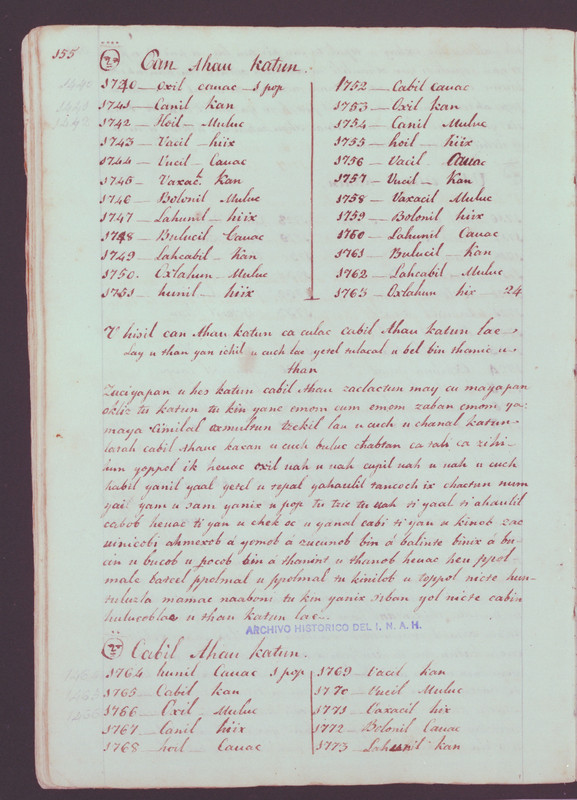 155
Can Ahau Katun.
1740 — Oxil cauac — 1 pop
1741 — Canil Kan
1742 — Hoil — Muluc
1743 — Vacil — hiix
1744 — Vucil — Cauac
1745 — Vaxac. Kan
1746 — Bolonil Muluc
1747 — Lahunil — hiix
1748 — Bulucil Cauac
1749 — Lahcabil — Kan
1750. Oxlahun — Muluc
1751 — hunil — hiix
1752 — Cabil Cauac
1753 — Oxil Kan
1754 — Canil Muluc
1755 — hoil — hiix
1756 — Vacil Cauac
1757 — Vucil — Kan
1758 — Vaxacil Muluc
1759 — Bolonil hiix
1760 — Lahunil Cauac
1761 — Bulucil — Kan
1762 — Lahcabil — Muluc
1763 — Oxlahun hix — 24
V hisil can Ahau katun ca culac cabil Ahau katun lae
Lay u than yan ichil u cuch lae yetel tulacal u bel bin thanic u
than
Zuciyapan u hes katun cabil Ahau zaclactun may cu mayapan
okliz tu katun tu kin yane emom cum emom zaban emom ya
maya cimilal oxmultun tzekel lau u cuch u chanal katun
habil yanil yaal yetel u topal yahaulil tancoch ix chactun num
yail yam u sam yanix u pop tu tzic tu uah ti yaal ti ahaulil
cabob heuac ti yan u chek oc u yanal cabi ti yan u kinob zac
uinicobi ahmexob á yomob á zucunob bin á balinte binix á bu-
cin u bucob u pocob bin á thanint u thanob heuac heu ppol-
male batcel ppolmal u ppolmal tu kinilob u toppol nicte hun-
tuluzla mamac naaboni tu kin yanix yol nicte cabin
hulucoblae u than katun lae.
ARCHIVO HISTORICO DEL I. N. A. H.
Cabil Ahau katun.
1764 hunil Cauac 1 pop
1765 — Cabil Kan
1766 — Oxil — Muluc
1767 — Canil hiix
1768 — hoil — Cauac
1769 — Vacil Kan
1770 — Vucil Muluc
1771 — Vaxacil hix
1772 — Bolonil Cauac
1773 — Lahunil Kan